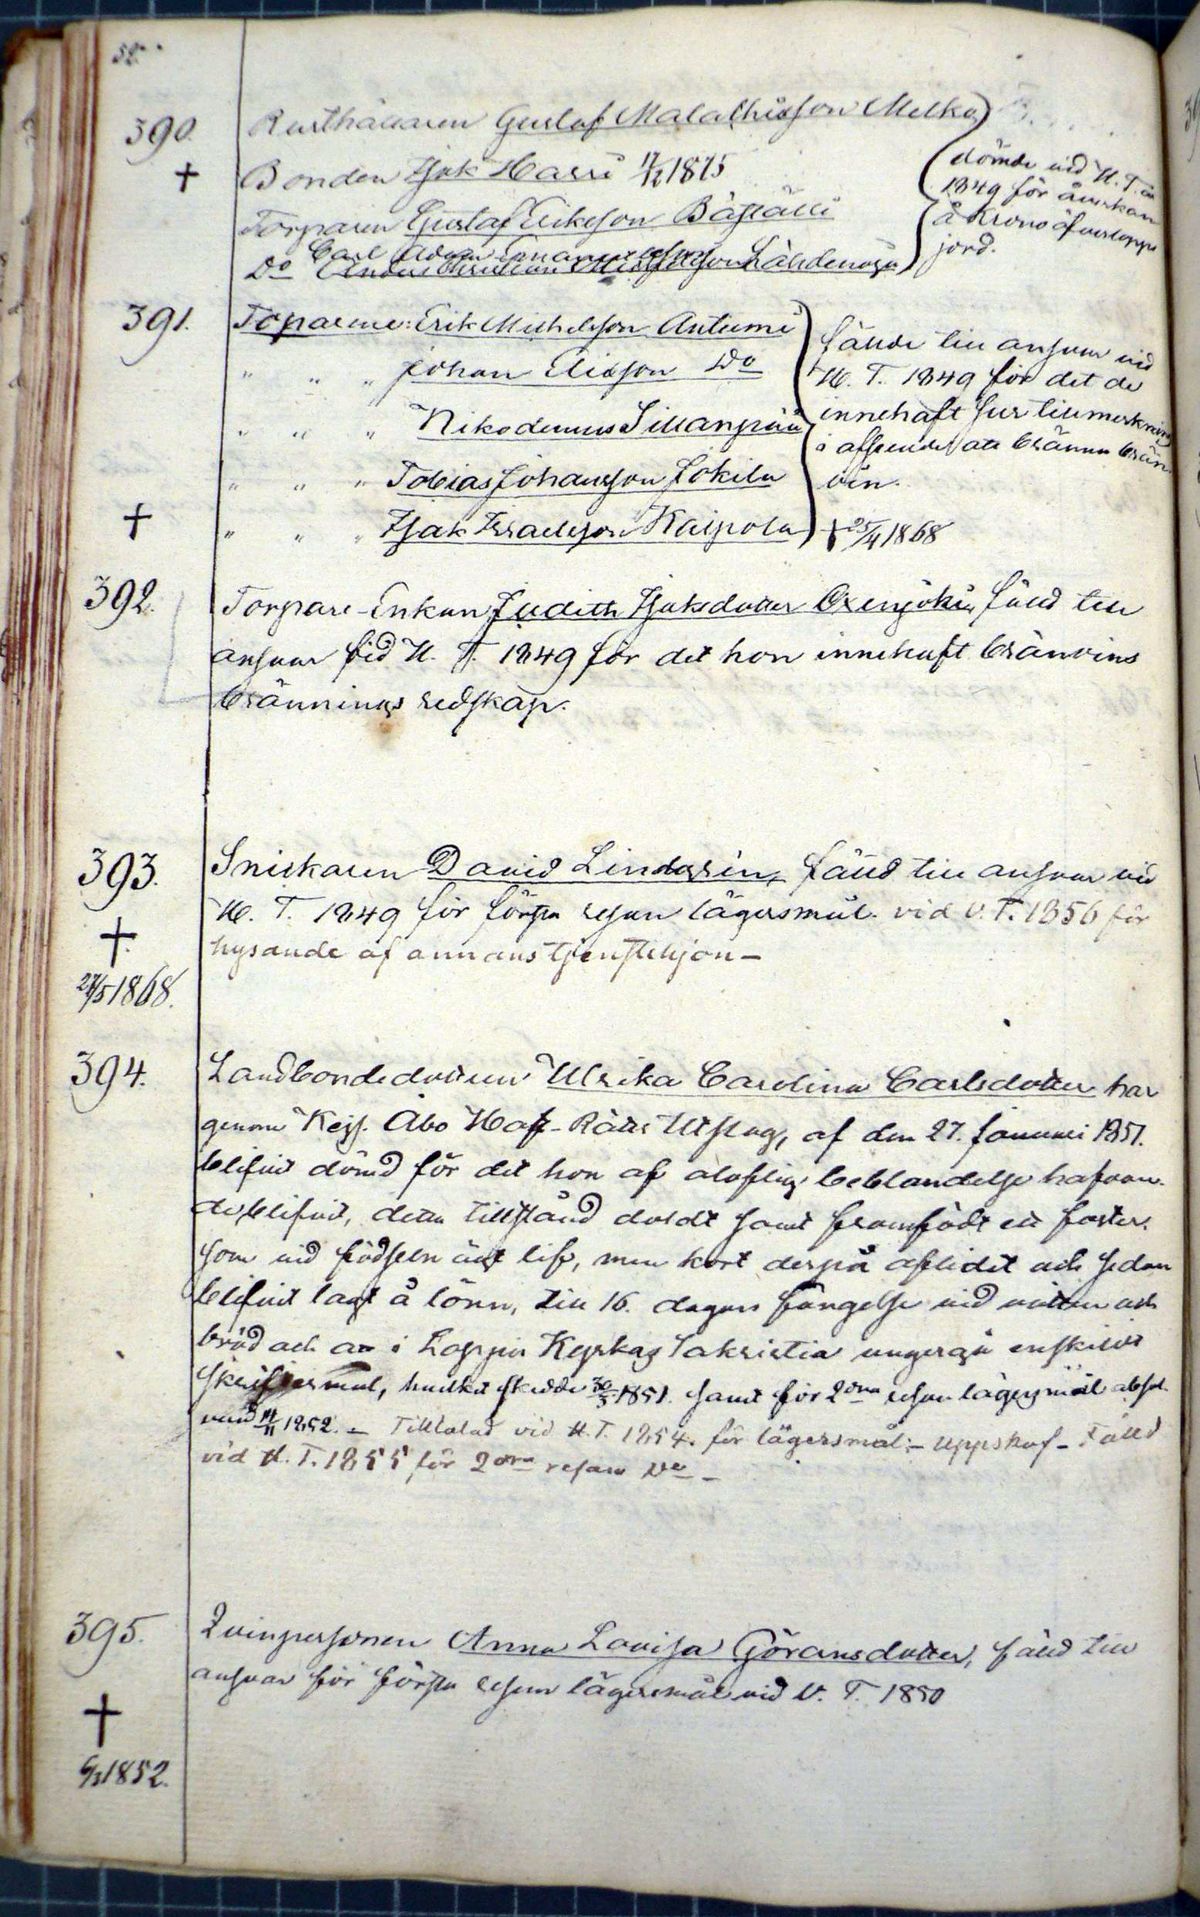 52.
390. Rusthållaren Gustaf Malachisson Melko
+ Bonden Isak Harri 17/12 1875
dömde vid H. T. 
1849 för åverkan
å Krono öfverlopps
jord.
Torparen Gustaf Erikson
Do Carl Adam Lähdenoja
391. Torparne: Erik Michelsson Anttumi
" " " Johan Do
" " " Nikodemus Sillanpää
" " " Tobias Johansson Jokila
+ " " " Isak Israelsson Kaipola + 25/4 1868
fällde till ansvar vid
H. T. 1849 för det de
innehaft
i afseende att bränna brän
vin.
392. Torpare-Enkan Judith Isaksdotter Oxenjoki, fälld till
ansvar vid H. T. 1849 för det hon innehaft bränvins
brännings redskap.
393. Snickaren David Lindgrén, fälld till ansvar vid
H. T. 1849 för första resan lägersmål. vid V. T. 1856 för
+ hysande af annans tjenstehjon –
27/5 1868.
394. Landbondedottren Ulrika Carolina Carlsdotter har
genom Kejs. Åbo Hof-Rätts Utslag, af den 27. Januari 1851.
blifvit dömd för det hon af oloflig beblandelse hafvan-
de blifvit, detta tillstånd doldt samt framfödt ett foster.
som vid födseln ägt lif, men kort derpå aflidit och sedan
blifvit lagt å lönn, till 16. dagars fängelse vid vatten och
bröd och att i Loppis Kyrkas Sakristia undergå enskildt
skriftermål, hvilket skedde 30/3 1851. samt för 2dra resan lägersmål absol-
verad 14/11 1852. – Tilltalad vid H. T. 1854. för lägersmål; – Uppskof – Fälld
vid H. T. 1855 för 2dra resan Do –
395. Qvinspersonen Anna Lovisa Göransdotter, fälld till
ansvar för första resan lägersmål vid V. T. 1850
+
6/3 1852.